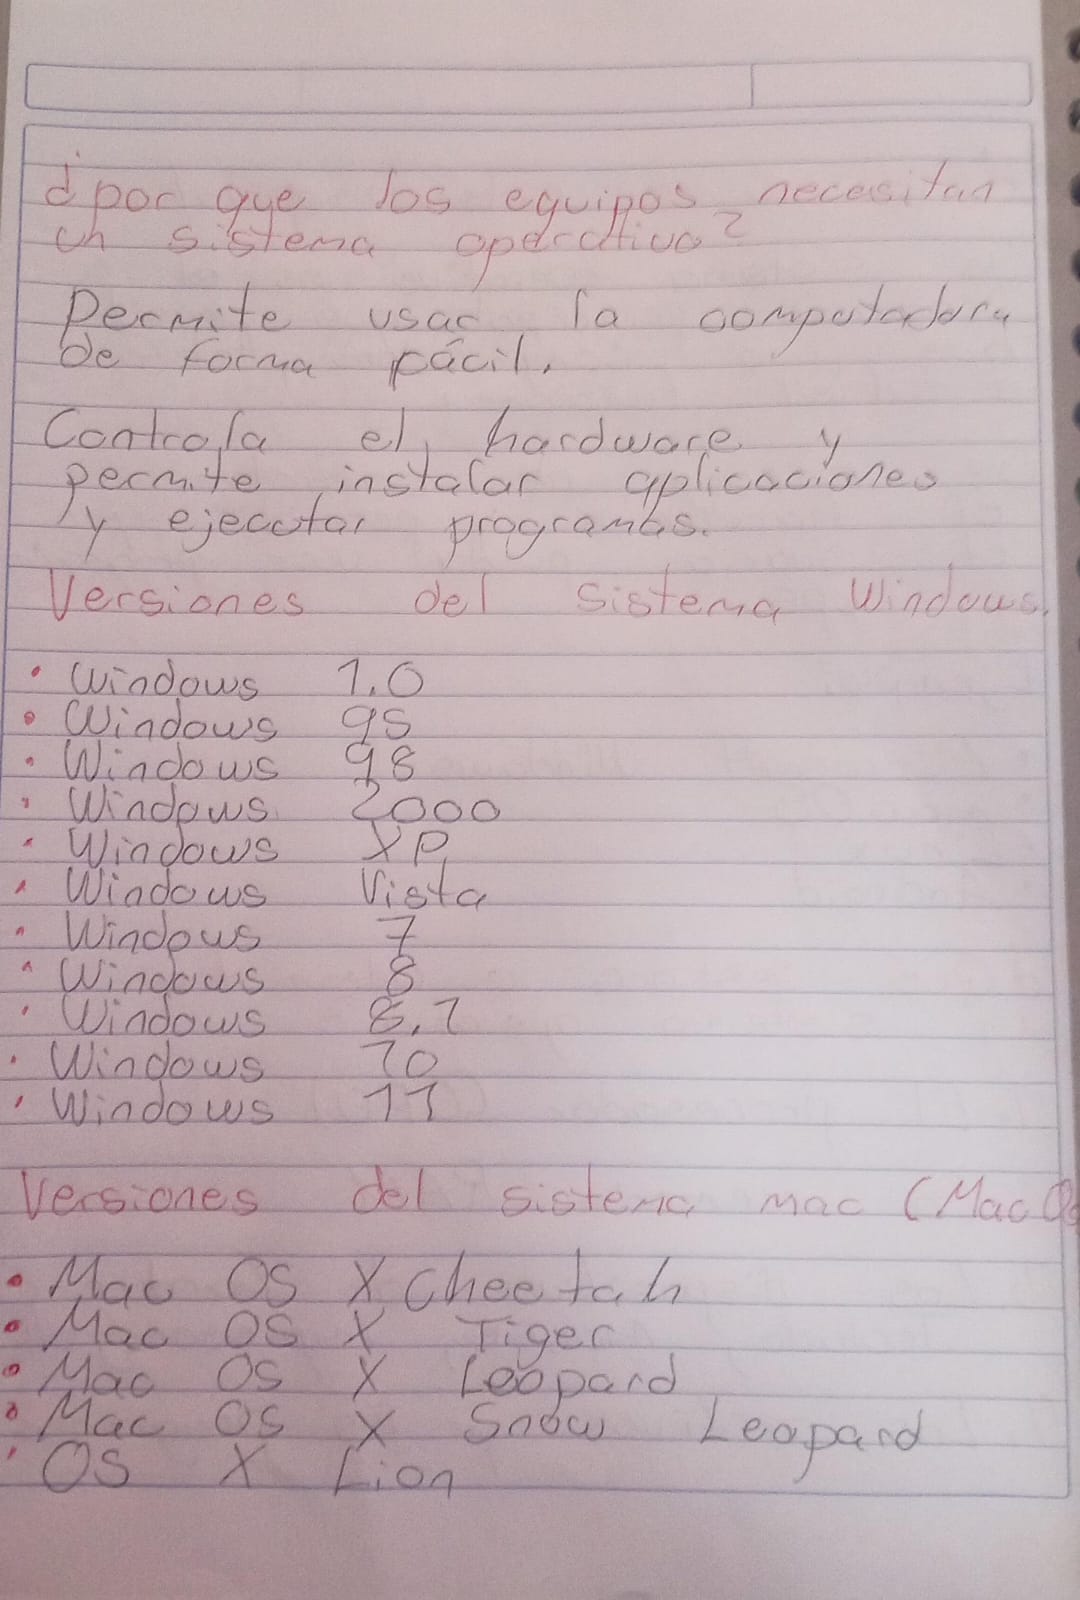 ¿por que los equipos necesitan
un sistema operativo?
Permite usar la computadora
de forma fácil.
Controla el hardware y
permite instalar aplicaciones
y ejecutar programas.
Versiones del sistema Windows.
• Windows 1.0
• Windows 95
• Windows 98
• Windows 2000
• Windows XP
• Windows Vista
• Windows 7
• Windows 8
• Windows 8.1
• Windows 10
• Windows 11
Versiones del sistema mac (Mac Os
• Mac OS X Cheetah
• Mac OS X Tiger
• Mac OS X Leopard
• Mac OS X Snow Leopard
• OS X Lion